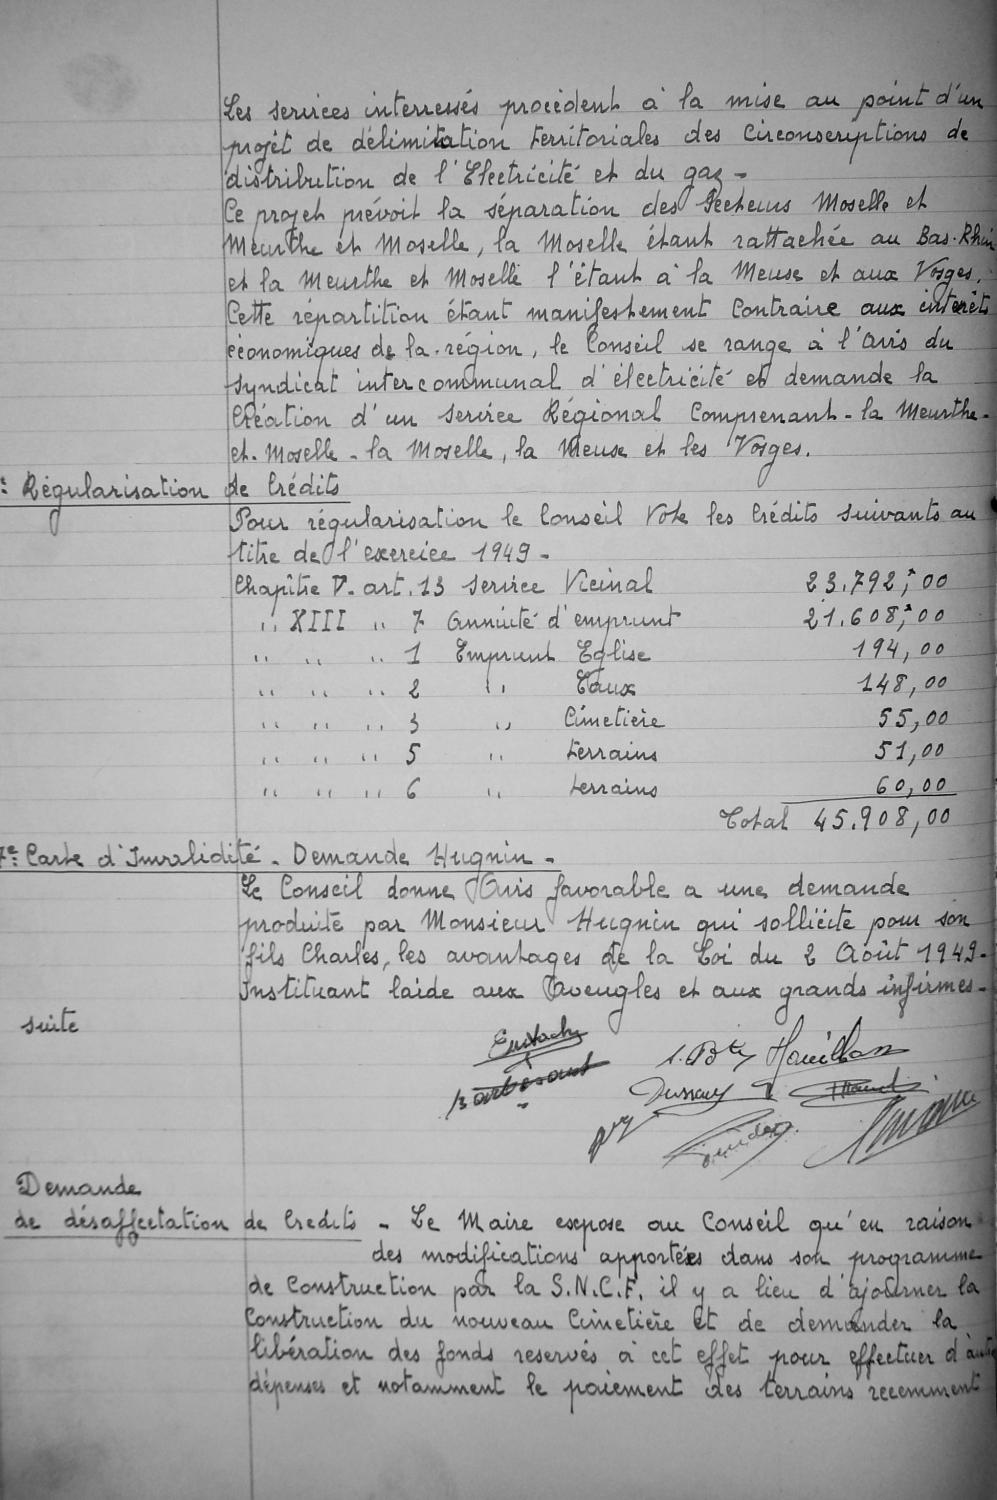 Les services interressés procèdent à la mise au point d'un
projet de délimitation territoriales des Circonscriptions de
distribution de l'Electricité et du gaz -
Ce projet prévoit la séparation des Secteurs Moselle et
Meurthe et Moselle, la Moselle étant rattachée au Bas-Rhin
et la Meurthe et Moselle l'étant à la Meuse et aux Vosges.
Cette répartition étant manifestement Contraire aux intérêts
économiques de la région, le Conseil se range à l'Avis du
Syndicat intercommunal d'électricité et demande la
Création d'un Service Régional Comprenant - la Meurthe-
et-Moselle - la Moselle, la Meuse et les Vosges.
Régularisation de Crédits
Pour régularisation le Conseil Vote les Crédits suivants au
titre de l'exercice 1949 -
Chapître V. art. 13 Service Vicinal 23.792,00
" XIII " 7 Annuité d'emprunt 21.608,00
" " " 1 Emprunt Eglise 194,00
" " " 2 " Eaux 148,00
" " " 3 " Cimetière 55,00
" " " 5 " terrains 51,00
" " " 6 " terrains 60,00
Total 45.908,00
7e: Carte d'Invalidité - Demande Hugnin -
Le Conseil donne Avis favorable a une demande
produite par Monsieur Hugnin qui sollicite pour son
fils Charles, les avantages de la Loi du 2 Août 1949-
Instituant laide aux Aveugles et aux grands infirmes -
suite
Eustache
Houillon
Demande
de désaffectation de Credits - Le Maire expose au Conseil qu'en raison
des modifications apportées dans son programme
de Construction par la S.N.C.F. il y a lieu d'ajourner la
Construction du nouveau Cimetière et de demander la
libération des fonds reservés à cet effet pour effectuer d'autres
dépenses et notamment le paiement des terrains recemment